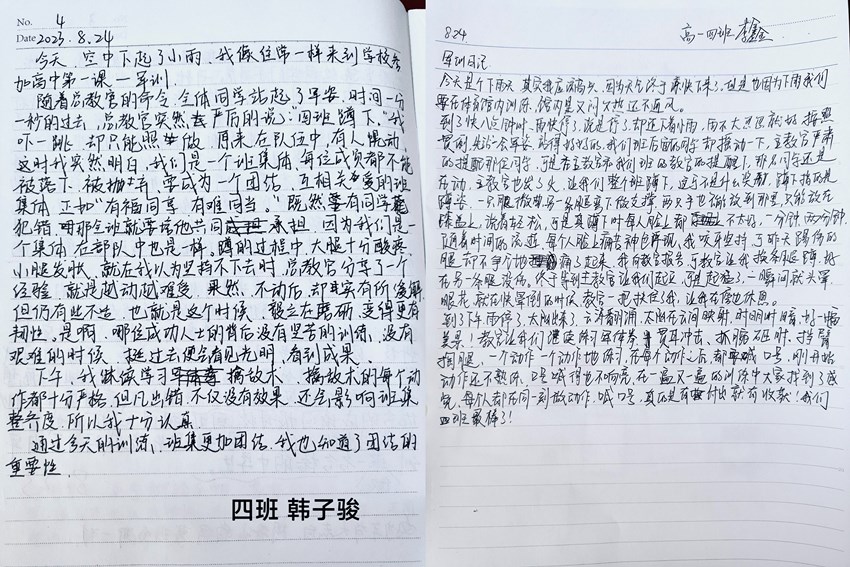 No. 4
Date 2023.8.24
今天,空中下起了小雨,我像往常一样来到学校参
加高中第一课一军训.
随着总教官的命令,全体同学站起了军姿,时间一分
一秒的过去,总教官突然严厉的说:"四班蹲下."我
吓一跳,却只能照做,原来在队伍中,有人晃动,
这时我突然明白,我们是一个班集体,每位成员都不能
被落下,被抛弃,要成为一个团结,互相关爱的班
集体,正如"有福同享,有难同当。"既然有同学
犯错,那全班就要陪他共同承担,因为我们是一
个集体,在部队中也是一样。蹲的过程中,大腿十分酸疼,
小腿发胀,就在我以为坚持不下去时,总教官分享了一个
经验,就是越动越难受,果然,不动后,却真实有所缓解,
但仍有些不适,也就是这个时候,毅立在磨研,变得更有
韧性。是啊,哪位成功人士的背后没有坚苦的训练,没有
艰难的时候,挺过去便会有见光明,看到成果.
下午,我继续学习擒敌术,擒敌术的每个动
作都十分严格,但凡出错,不仅没有效果,还会影响班集
整齐度,所以我十分认真.
通过今天的训练,班集更加团结,我也知道了团结的
重要性.
四班 韩子骏
8.24 高一四班 李鑫
军训日记
今天是个下雨天,其实我应该高兴,因为天气终于凉快下来了,但是也因为下雨我们
要在体育馆内训练,馆内是又闷又热还不通风。
到了快八点钟时,雨快停了,说进行了,却还下着小雨,雨不大
贯例先站会军姿,站得好好的,我们班后面同学却摇动一下,主教官严肃
的提醒那位同学,可是在主教官和我们班的教官的提醒下,那名同学还是
在动,主教官也发了火,让我们整个班蹲下,这可不是什么奖励,蹲下指的是
蹲姿,一只腿另一条腿要下做支撑,两只手也能放到那里,只能放在
膝盖上,说着轻松,可是真蹲下时每人脸上都不太好,一分钟,两分钟,
随着时间的流逝,每个人脸上痛苦神色再现,我咬牙坚持,可那天陽伤的
腿却不争气地痛了起来,我向教官报告,可教官让我换条腿蹲,好
在另一条腿没伤。终于等到主教官让我们起立,可是起猛了,一瞬间就头晕
眼花,就在快晕倒的时候,教官一把扶住了我,让我在旁边休息。
到了下午雨停了,太阳出来了,云清散朗,太阳在云间映射,时明时暗,好一幅
美景!教官让我们继续练习军体拳,贯耳冲击、抓肠砸肘、挡臂
掏腿,一个动作一个动作地练习,在每个动作之后,都要喊口号,刚开始
动作还不熟练,口号喊得也不响亮,在一遍又一遍的训练中大家找到了感
觉,每个人都在同一刻做动作,喊口号,真的是有付出就有收获!我们
四班最棒了!